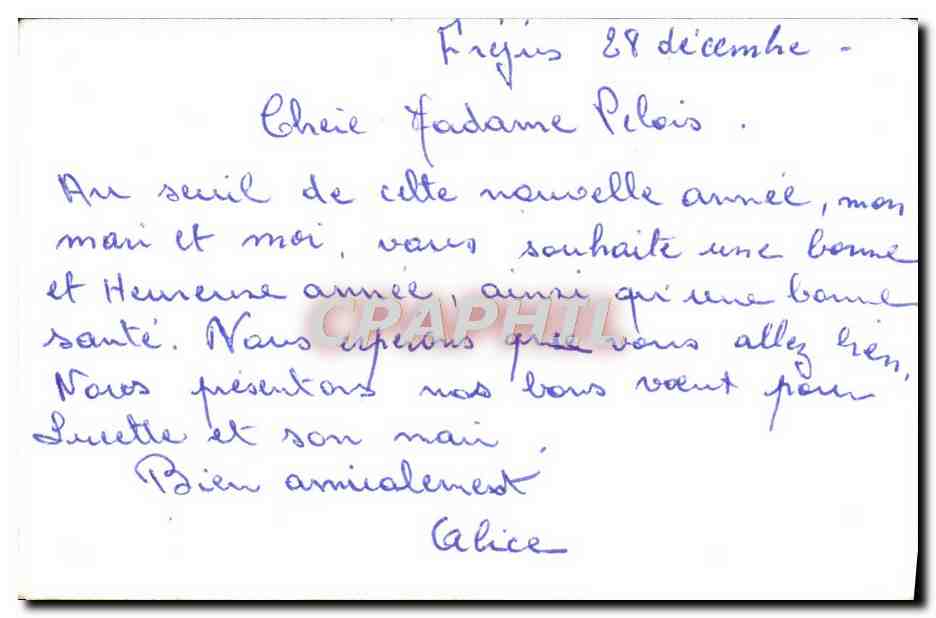 Fréjus 28 décembre -
Chère Madame Pelois.
Au seuil de cette nouvelle année, mon
mari et moi, vous souhaite une bonne
et Heureuse année, ainsi qu'une bonne
santé. Nous espérons que vous allez bien,
Nous présentons nos bons vœux pour
Lucette et son mari,
Bien amicalement
Alice
CPAPHIL